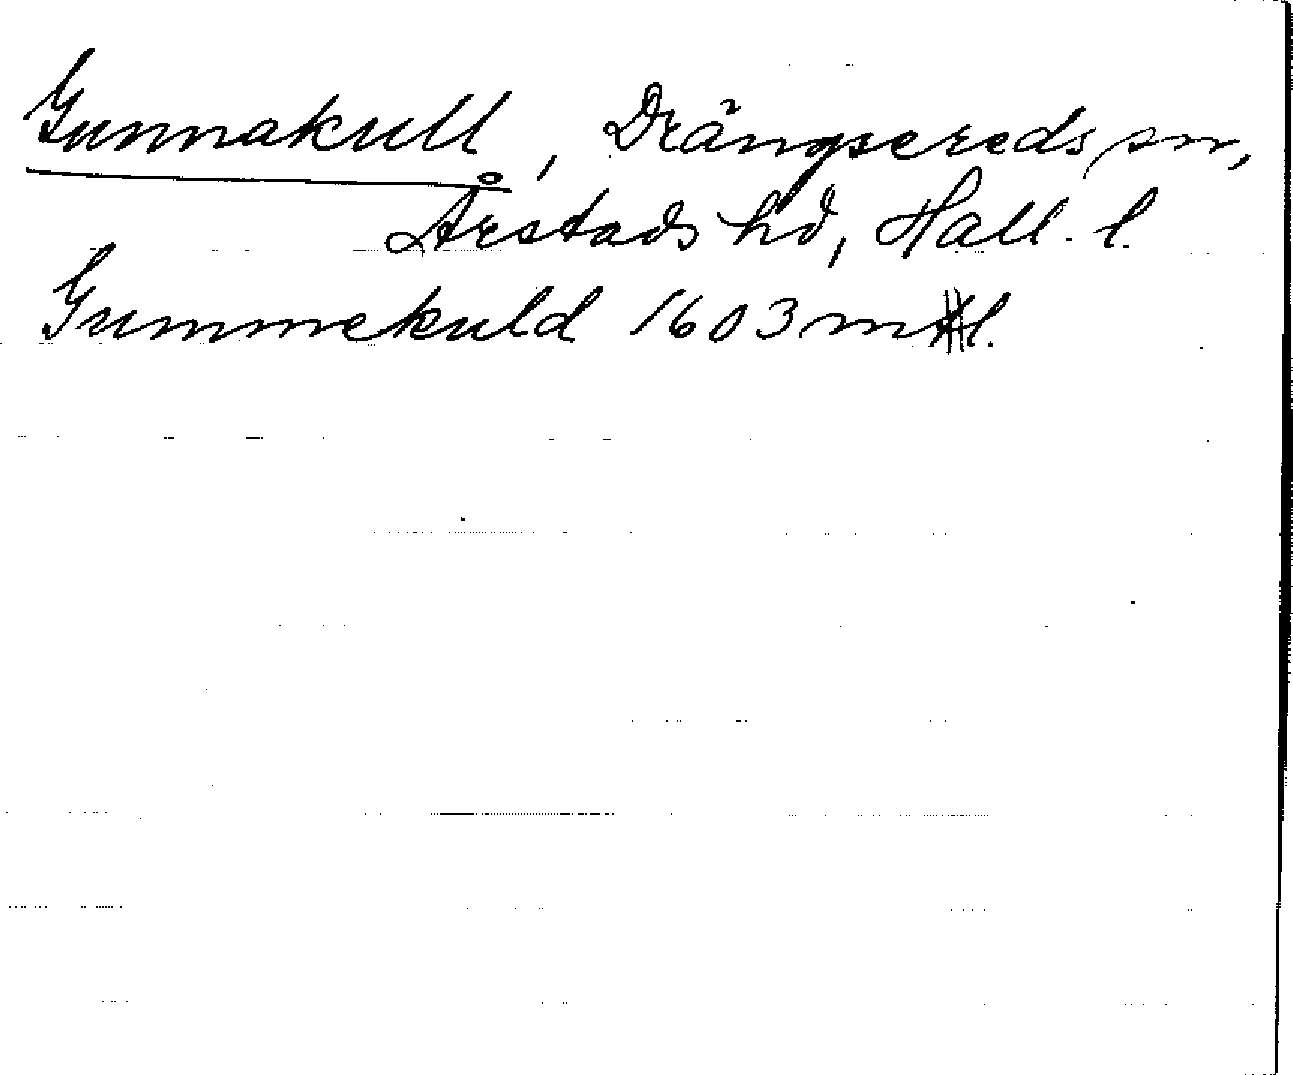 Gunnakull, Drängsereds sn,
Årstads hd, Hall. l.
Gummekuld 1603 m l.